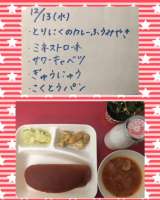 12/13(水)
・とりにくのカレーふうみやき
・ミネストローネ
・サワーキャベツ
・ぎゅうにゅう
・こくとうパン